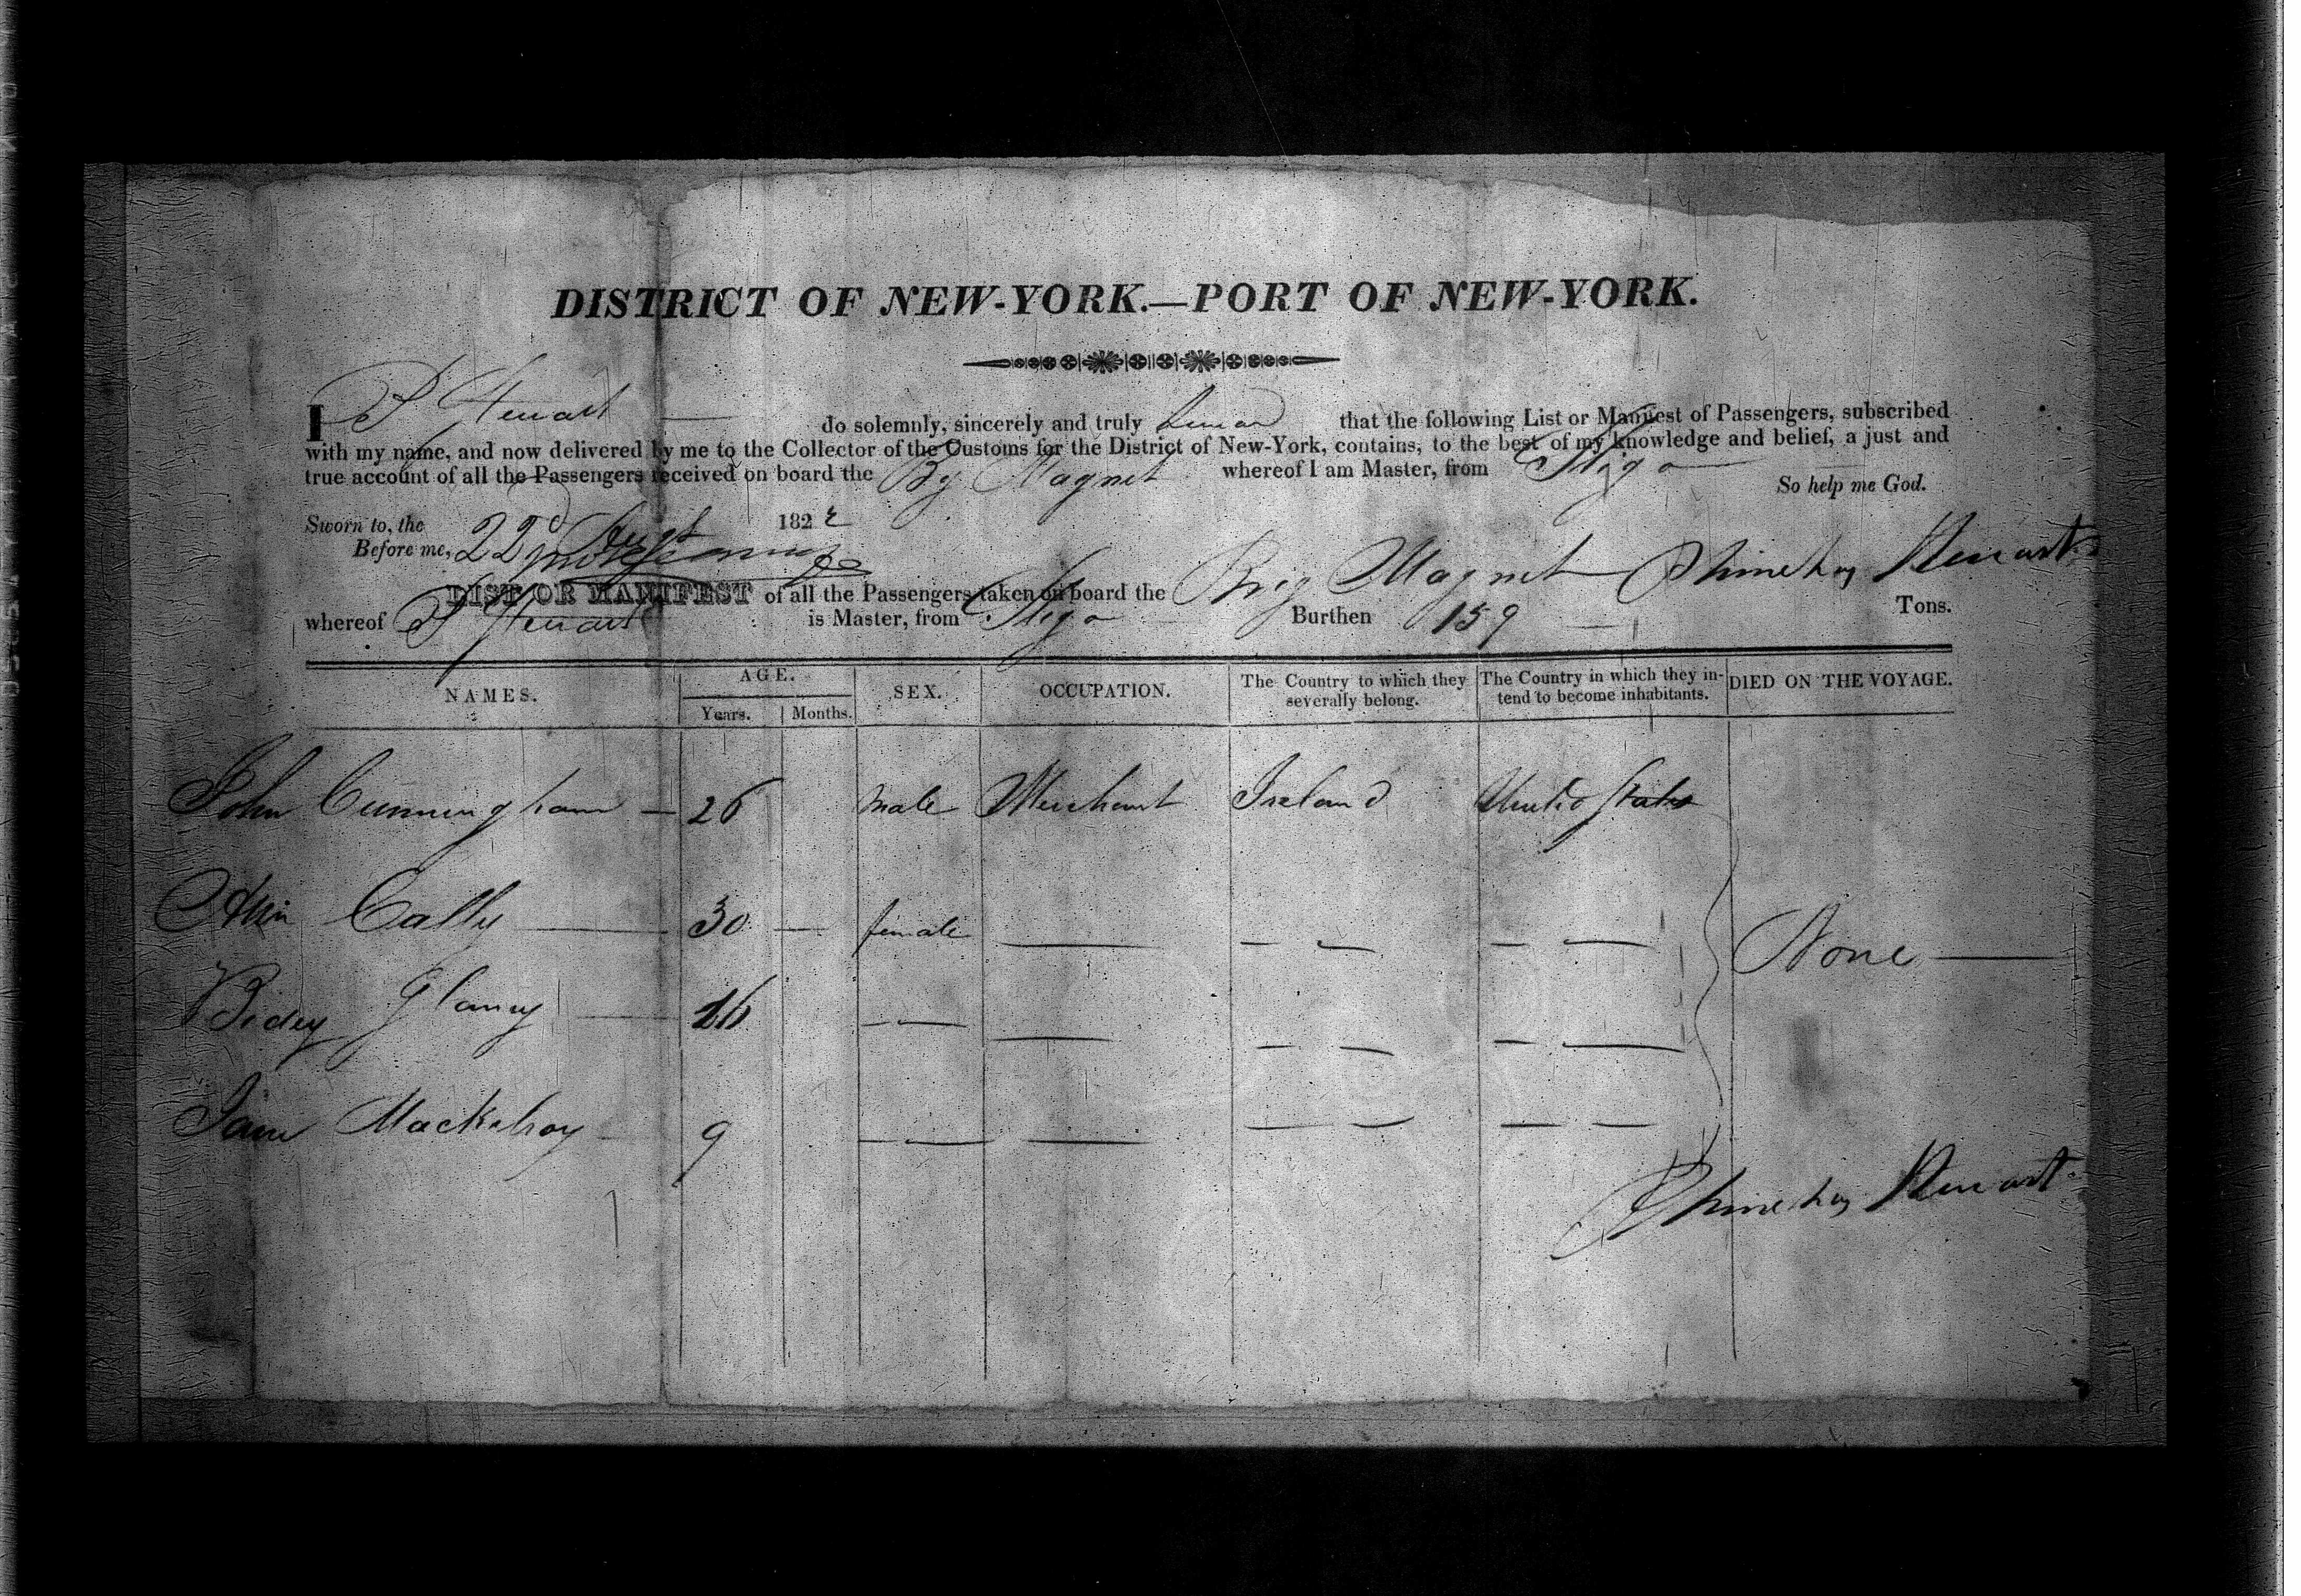 DISTRICT OF NEW-YORK.—PORT OF NEW-YORK.
I P Stewart do solemnly, sincerely and truly Swear that the following List or Manifest of Passengers, subscribed
with my name, and now delivered by me to the Collector of the Customs for the District of New-York, contains, to the best of my knowledge and belief, a just and
true account of all the Passengers received on board the Bg Magnet whereof I am Master, from Sligo
So help me God.
Sworn to, the 22d Augt 1822
Before me,
Phinehas Stewart
LIST OR MANIFEST of all the Passengers taken on board the Brig Magnet
whereof P Stewart is Master, from Sligo Burthen 159 Tons.
NAMES. AGE. SEX. OCCUPATION. The Country to which they severally belong. The Country in which they intend to become inhabitants. DIED ON THE VOYAGE.
Years. Months.
John Cunningham — 26 male Merchant Ireland United States
Ann Cally — 30 — female — — — — —
None —
Bidey Glancy — 16 — — — — — — —
Jane Mackelroy 9 — — — — — — —
Phinehas Stewart